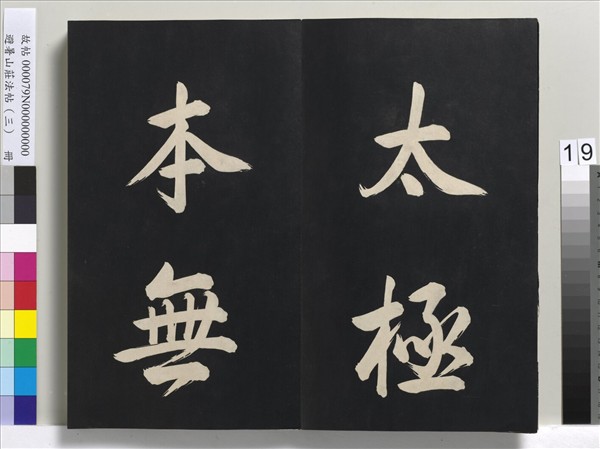 太極
本無
故帖 000079N000000000
避暑山莊法帖（三） 冊
19